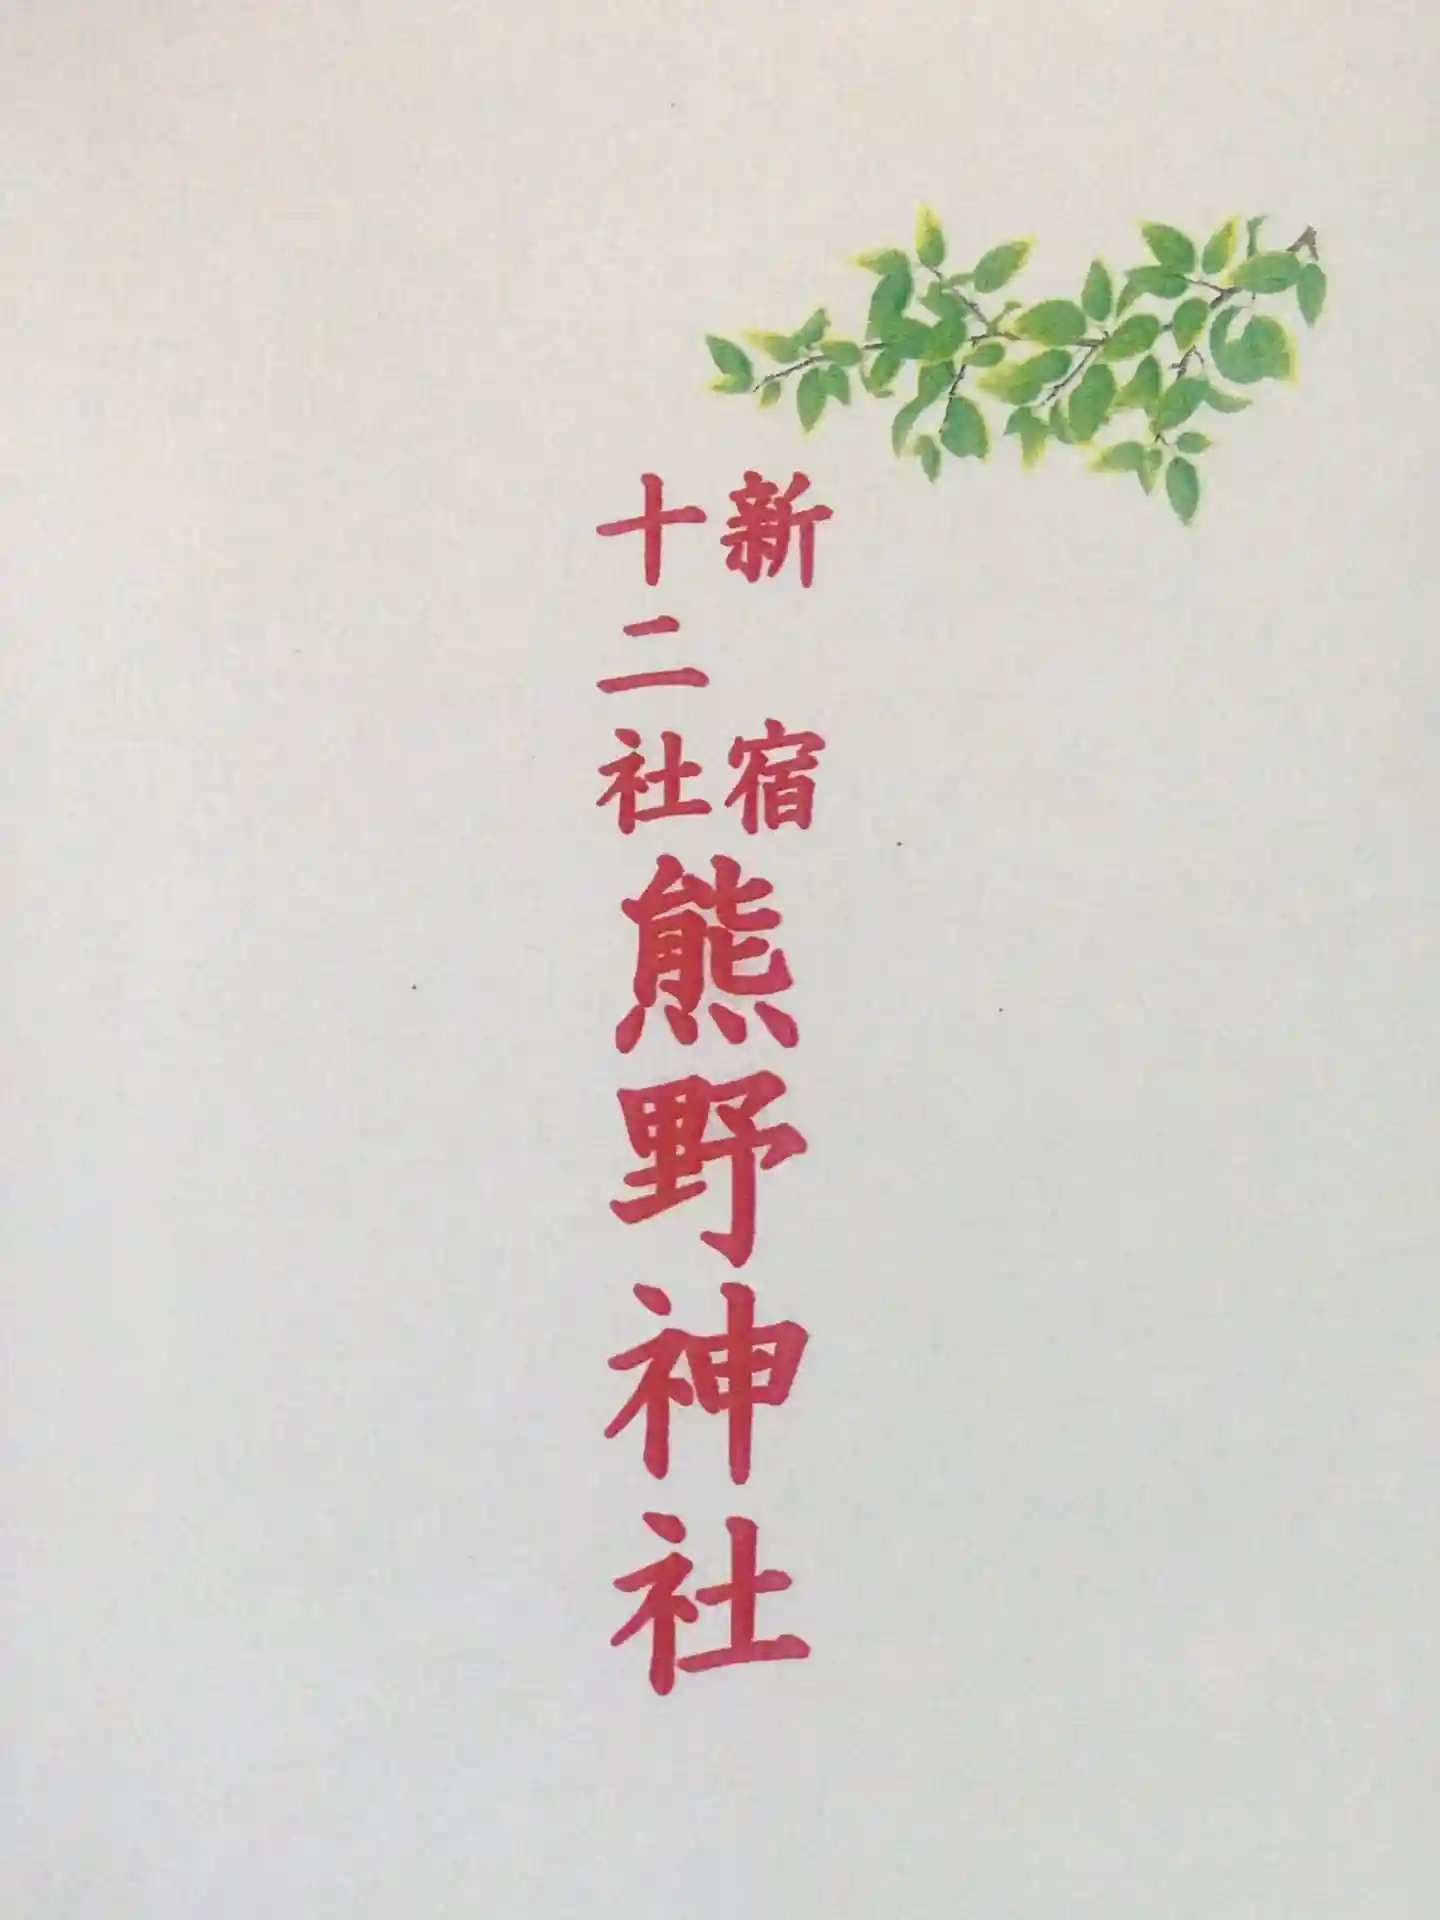 新宿
十二社
熊野神社